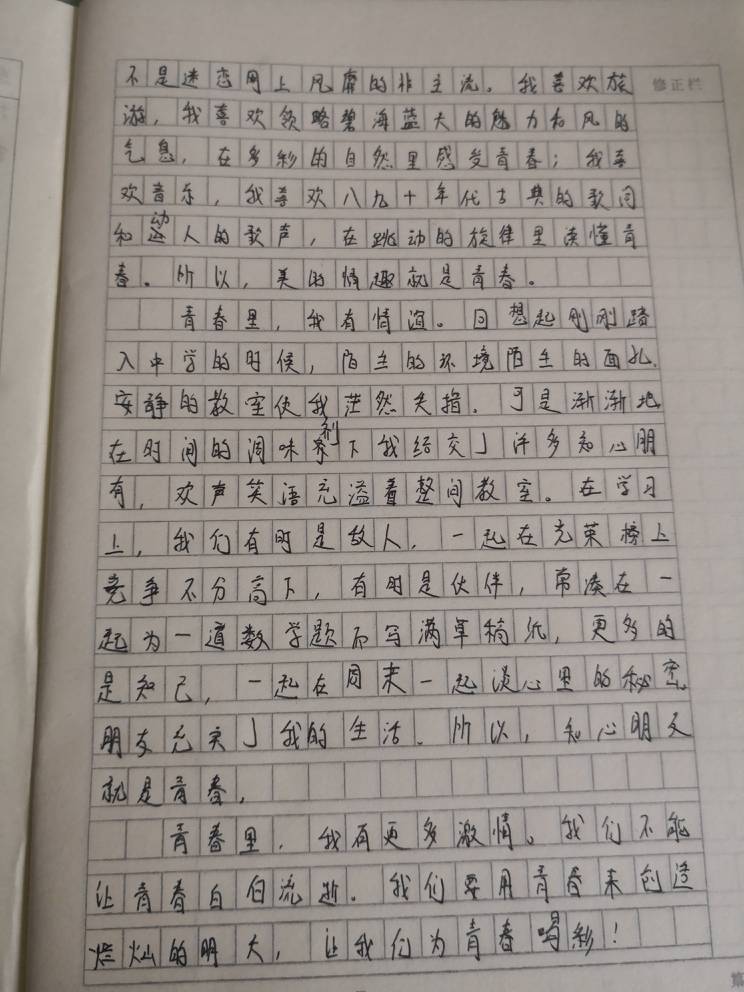 不是迷恋网上风靡的非主流。我喜欢旅
修正栏
游，我喜欢领略碧海蓝天的魅力和风的
气息，在多彩的自然里感受青春；我喜
欢音乐，我喜欢八九十年代古典的歌词
和动人的歌声，在跳动的旋律里读懂青
春。所以，美的情趣就是青春。
青春里，我有情谊。回想起刚刚踏
入中学的时候，陌生的环境陌生的面孔，
安静的教室使我茫然失措。于是渐渐地
在时间的调味剂下我结交了许多知心朋
有，欢声笑语充溢着整间教室。在学习
上，我们有时是敌人，一起在光荣榜上
竞争不分高下，有时是伙伴，常凑在一
起为一道数学题而写满草稿纸，更多的
是知己，一起在周末一起谈心里的秘密。
朋友充实了我的生活。所以，知心朋友
就是青春，
青春里，我有更多激情。我们不能
让青春白白流逝。我们要用青春来创造
灿烂的明天，让我们为青春喝彩！
第